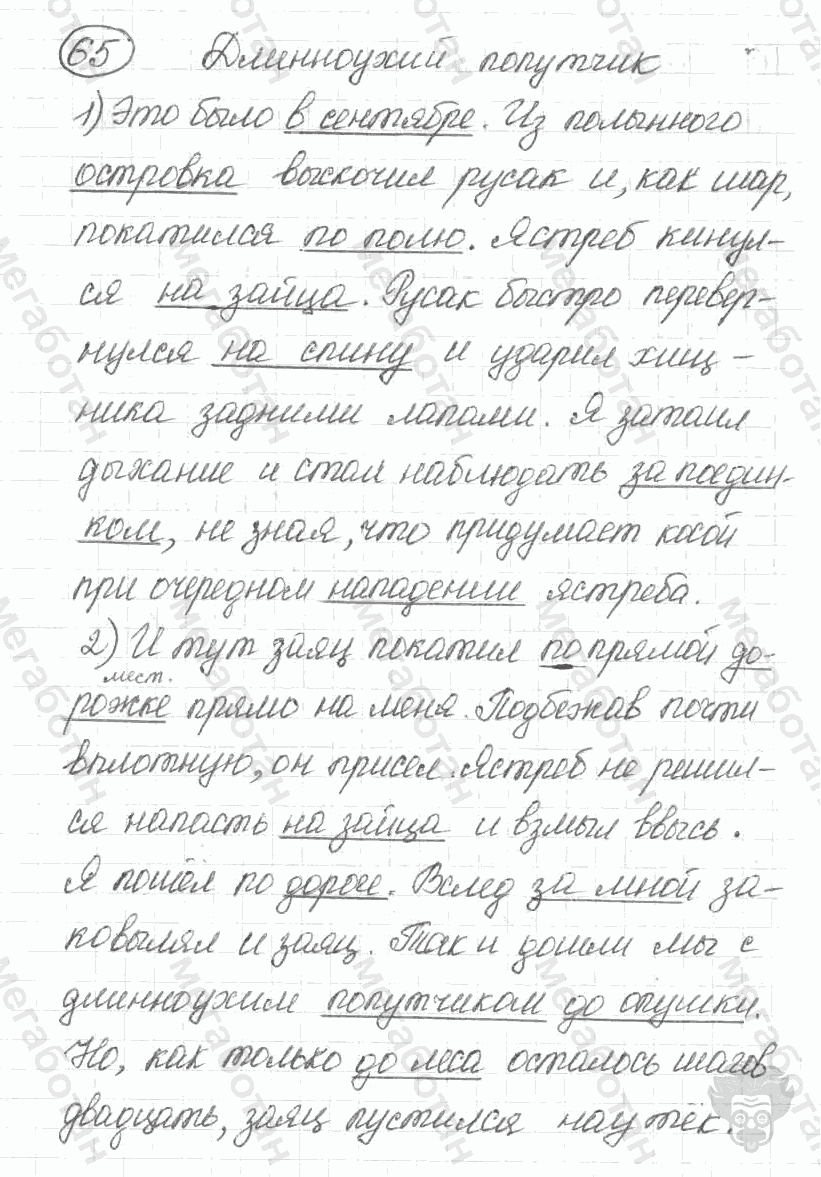 65 Длинноухий попутчик
1) Это было в сентябре. Из полынного
островка выскочил русак и, как шар,
покатился по полю. Ястреб кинул-
ся на зайца. Русак быстро перевер-
нулся на спину и ударил хищ-
ника задними лапами. Я затаил
дыхание и стал наблюдать за поедин-
ком, не зная, что придумает косой
при очередном нападении ястреба.
2) И тут заяц покатил по прямой до-
мест.
рожке прямо на меня. Подбежав почти
вплотную, он присел. Ястреб не решил-
ся напасть на зайца и взмыл ввысь.
Я пошёл по дороге. Вслед за мной за-
ковылял и заяц. Так и дошли мы с
длинноухим попутчиком до опушки.
Но, как только до леса осталось шагов
двадцать, заяц пустился наутёк.
мегаботан